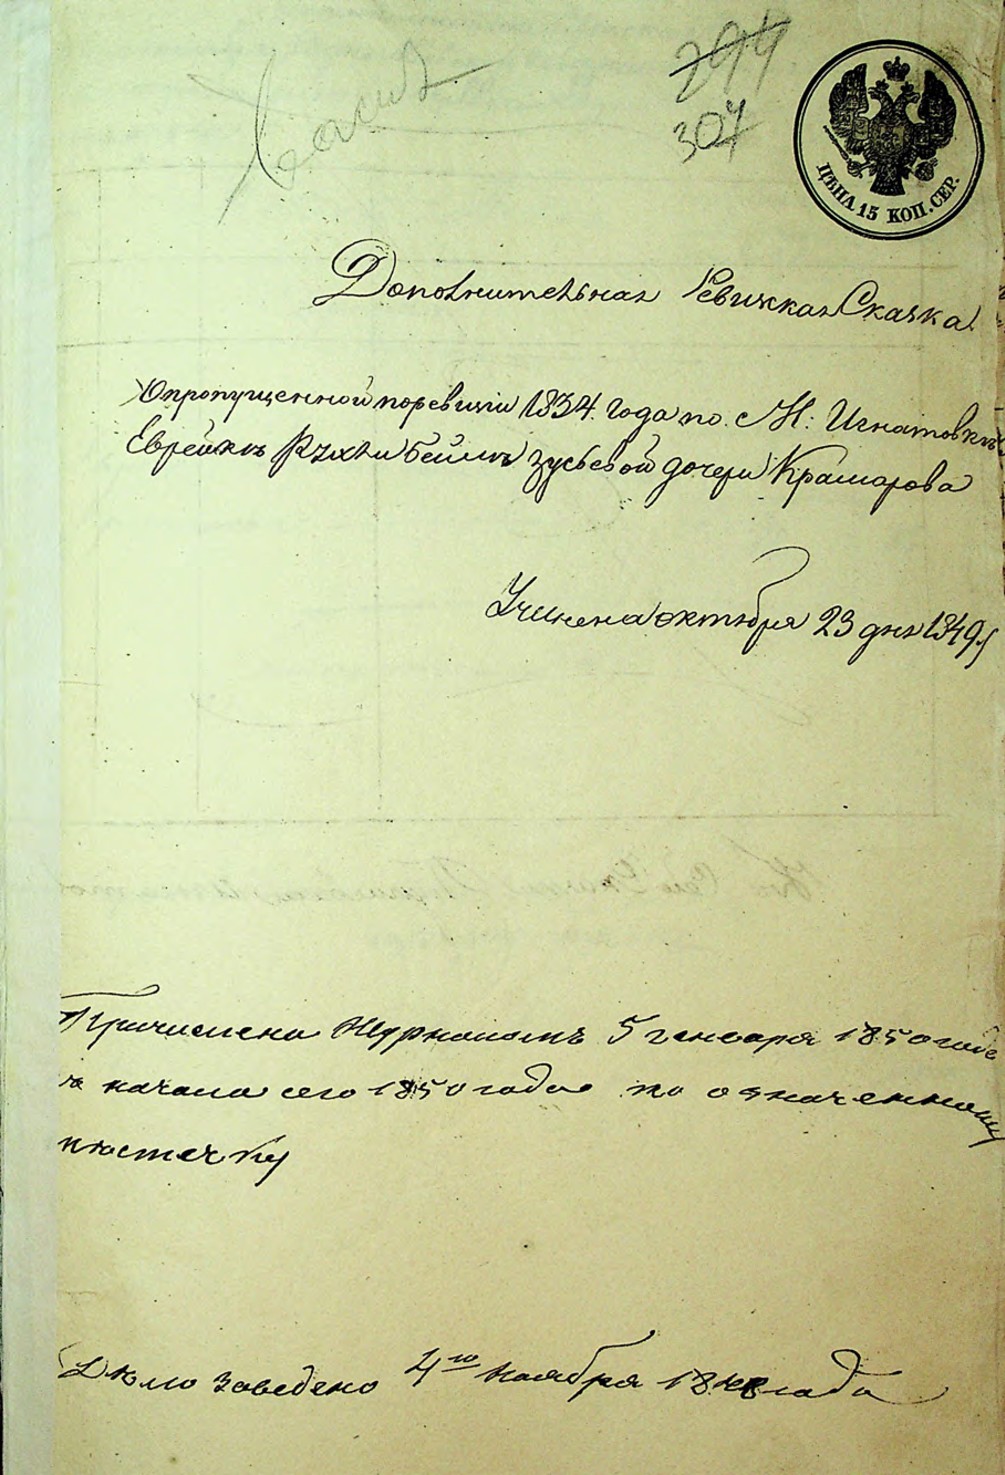 294
307
ЦѢНА 15 КОП. СЕР.
Дополнительная Ревижская Сказка
О пропущенной по ревизіи 1834. года по М: Игнатовкѣ
Еврейкѣ Рухли Беймѣ Зусьевой дочери Крамарова
Учинена октября 23 дня 1849
Причислена Журналомъ 5 генваря 1850 года
начала сего 1850 года по означенному
мѣстечку
Дѣло заведено 4го ноября года